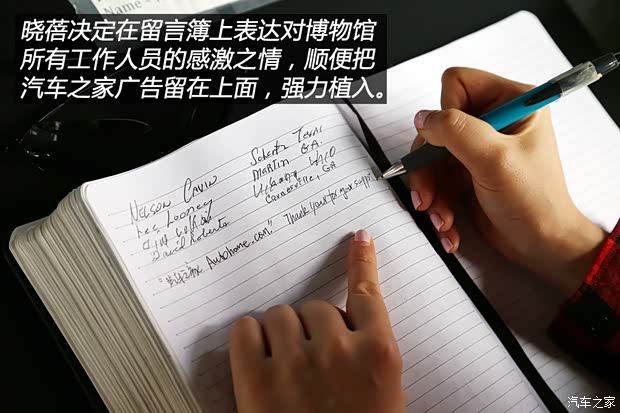 Name
晓蓓决定在留言簿上表达对博物馆
所有工作人员的感激之情，顺便把
汽车之家广告留在上面，强力植入。
NELSON CAVIN
Les Looney
David Roberts
MARTIN GA
Cornersville, GA
"汽车之家 Autohome.com" Thank you for your support
汽车之家